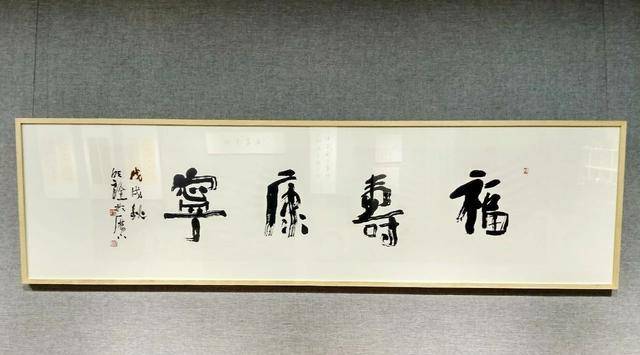 福壽康寧
戊戌秋